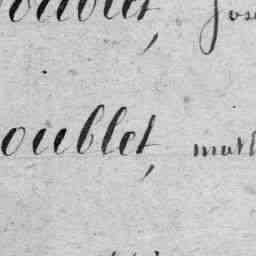 oublet, Jos
oublet, math